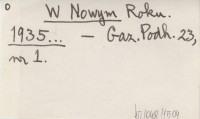 W Nowym Roku.
1935... — Gaz. Podh. 23,
nr 1.